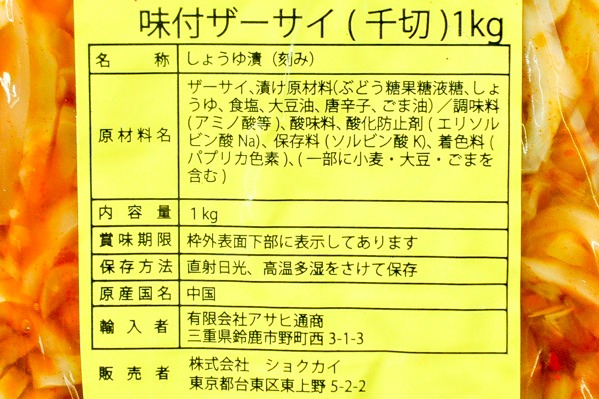 味付ザーサイ(千切)1kg
名称 しょうゆ漬（刻み）
原材料名 ザーサイ、漬け原材料(ぶどう糖果糖液糖、しょ
うゆ、食塩、大豆油、唐辛子、ごま油)／調味料
(アミノ酸等)、酸味料、酸化防止剤(エリソル
ビン酸Na)、保存料(ソルビン酸K)、着色料(
パプリカ色素)、(一部に小麦・大豆・ごまを
含む)
内容量 1kg
賞味期限 枠外表面下部に表示してあります
保存方法 直射日光、高温多湿をさけて保存
原産国名 中国
輸入者 有限会社アサヒ通商
三重県鈴鹿市野町西3-1-3
販売者 株式会社 ショクカイ
東京都台東区東上野5-2-2